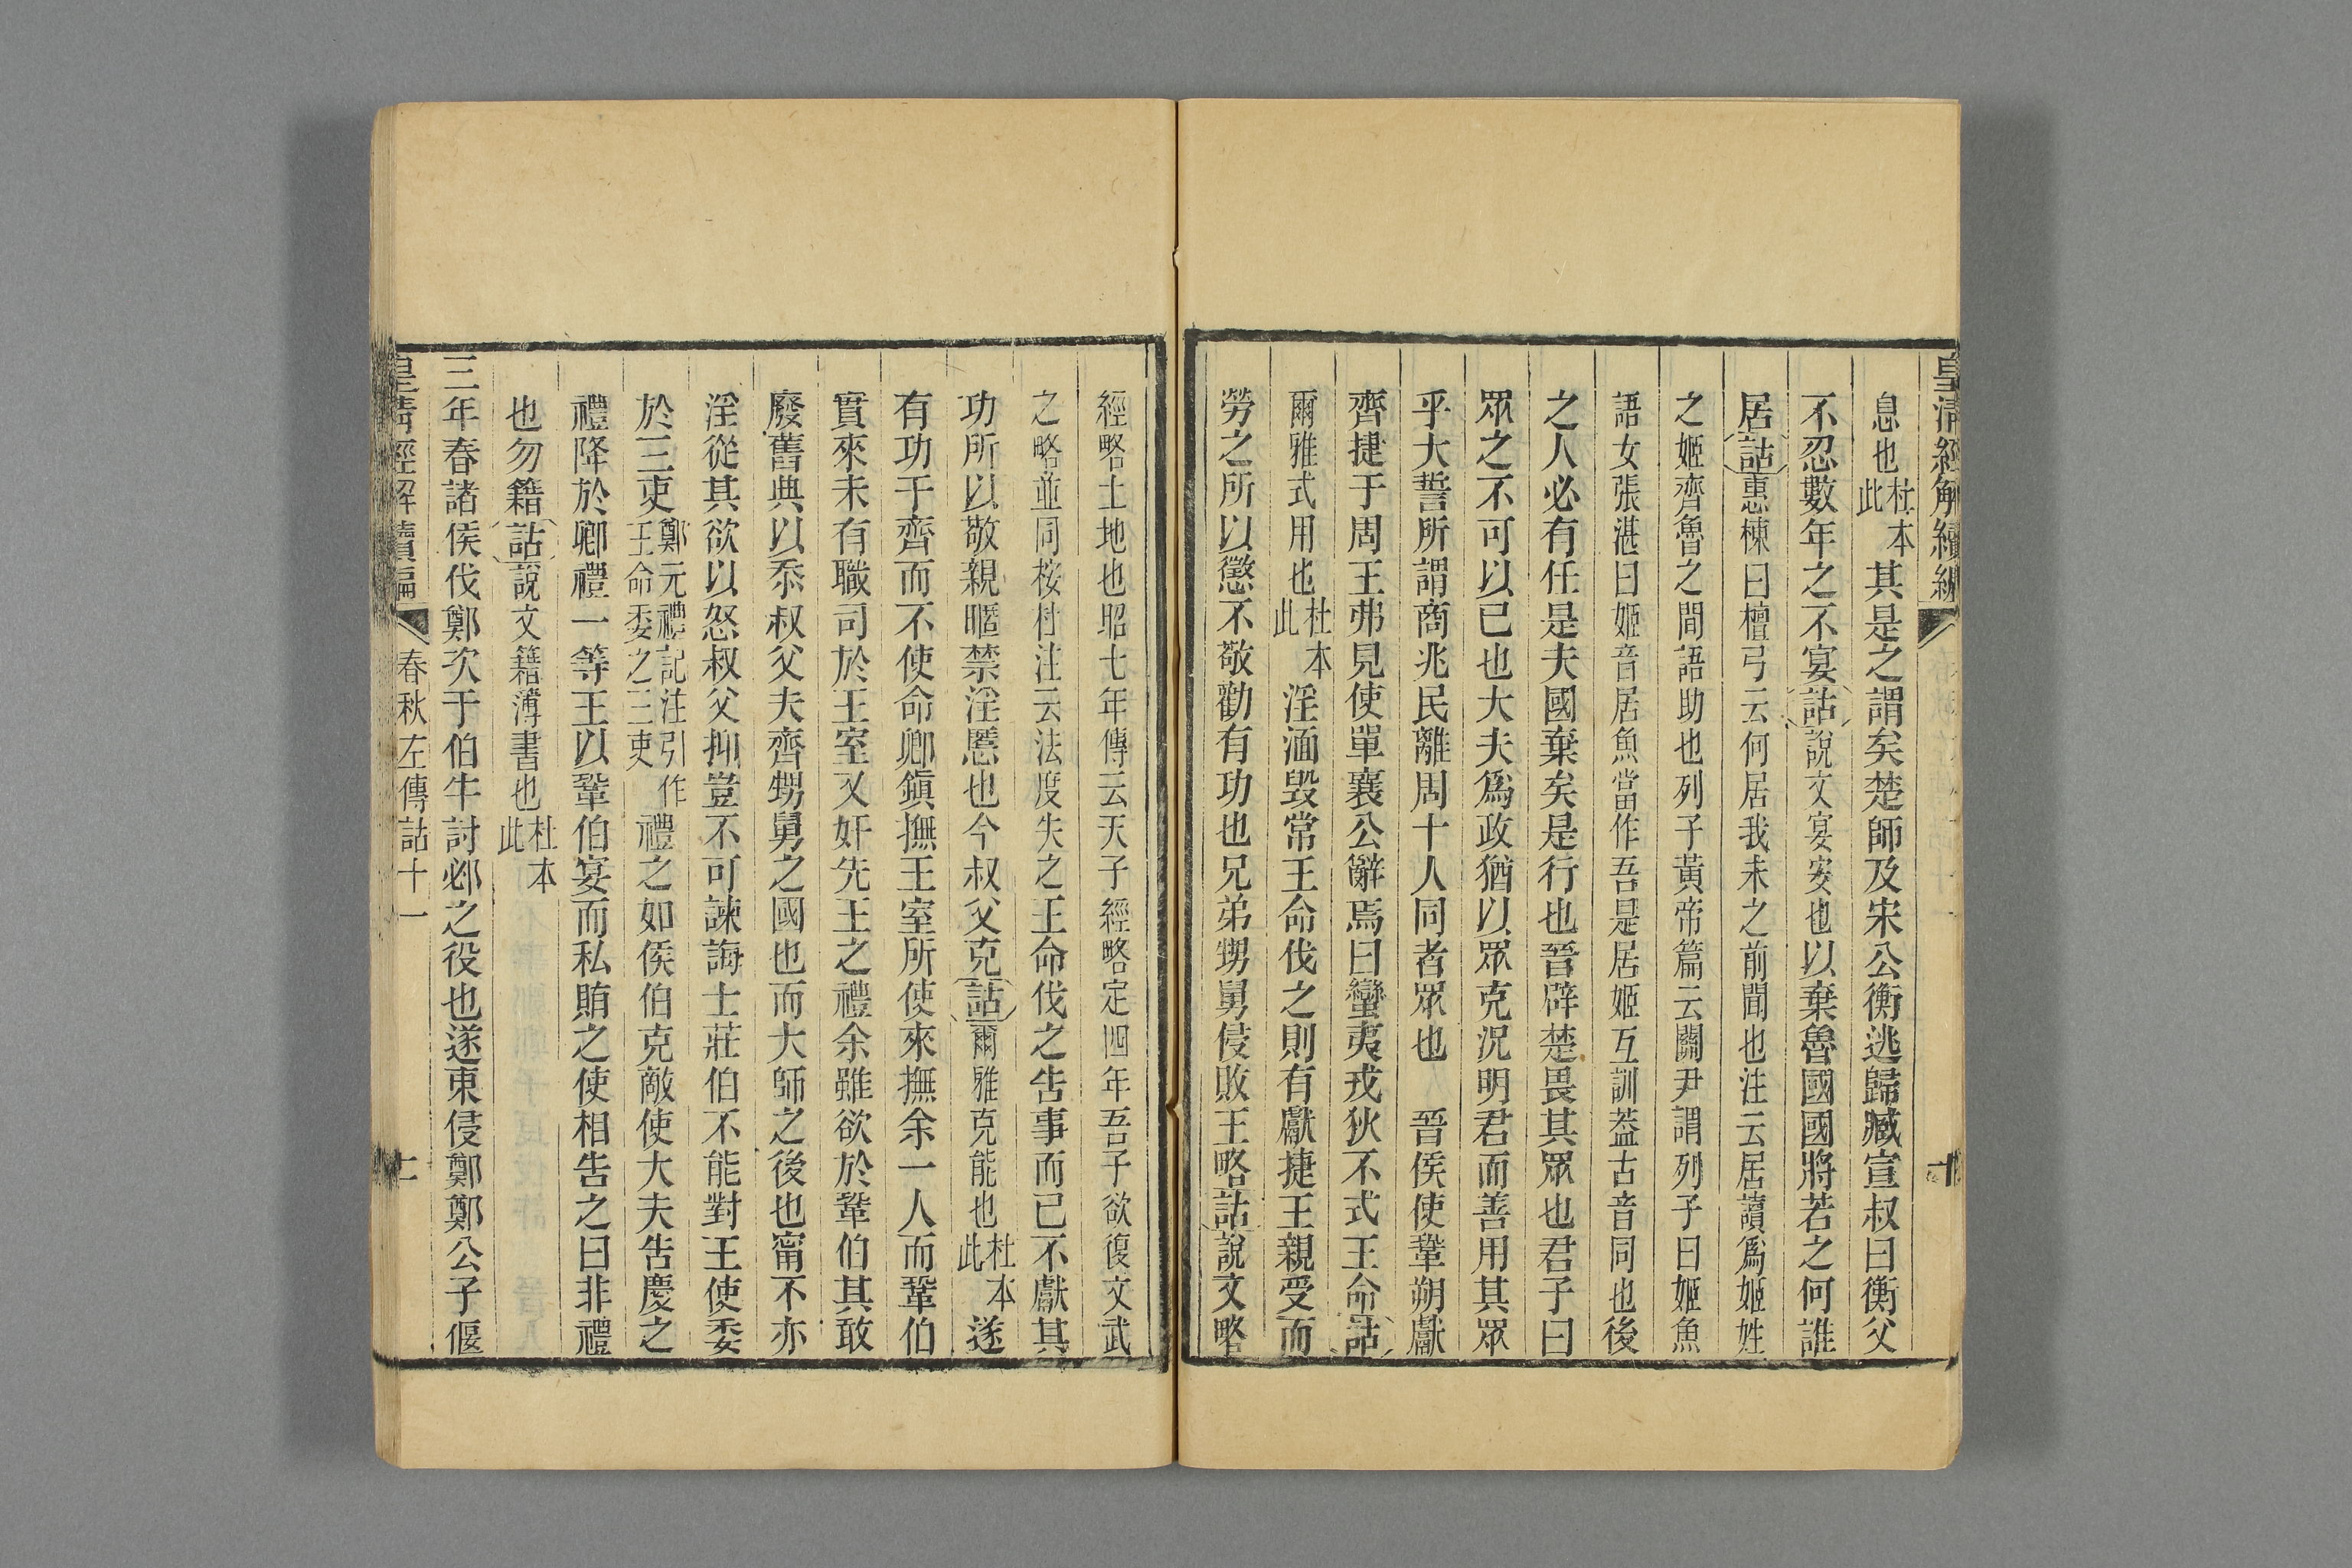 皇清經解續編
息也杜本此其是之謂矣楚師及宋公衡逃歸臧宣叔曰衡父
不忍數年之不宴詁說文宴安也以棄魯國國將若之何誰
居詁惠棟曰檀弓云何居我未之前聞也注云居讀爲姬姓
之姬齊魯之間語助也列子黃帝篇云關尹謂列子曰姬魚
語女張湛曰姬音居魚當作吾是居姬互訓葢古音同也後
之人必有任是夫國棄矣是行也晉辟楚畏其眾也君子曰
眾之不可以已也大夫爲政猶以眾克況明君而善用其眾
乎大誓所謂商兆民離周十人同者眾也　晉侯使鞏朔獻
齊捷于周王弗見使單襄公辭焉曰蠻夷戎狄不式王命詁
爾雅式用也杜本此淫湎毀常王命伐之則有獻捷王親受而
勞之所以懲不敬勸有功也兄弟甥舅侵敗王略詁說文略
經略土地也昭七年傳云天子經略定四年吾子欲復文武
之略並同桉杜注云法度失之王命伐之告事而已不獻其
功所以敬親暱禁淫慝也今叔父克詁爾雅克能也杜本此遂
有功于齊而不使命卿鎭撫王室所使來撫余一人而鞏伯
實來未有職司於王室又奸先王之禮余雖欲於鞏伯其敢
廢舊典以忝叔父夫齊甥舅之國也而大師之後也甯不亦
淫從其欲以怒叔父抑豈不可諫誨士莊伯不能對王使委
於三吏鄭元禮記注引作王命委之三吏禮之如侯伯克敵使大夫告慶之
禮降於卿禮一等王以鞏伯宴而私賄之使相告之曰非禮
也勿籍詁說文籍薄書也杜本此
三年春諸侯伐鄭次于伯牛討邲之役也遂東侵鄭鄭公子偃
皇清經解續編　春秋左傳詁十一　十一